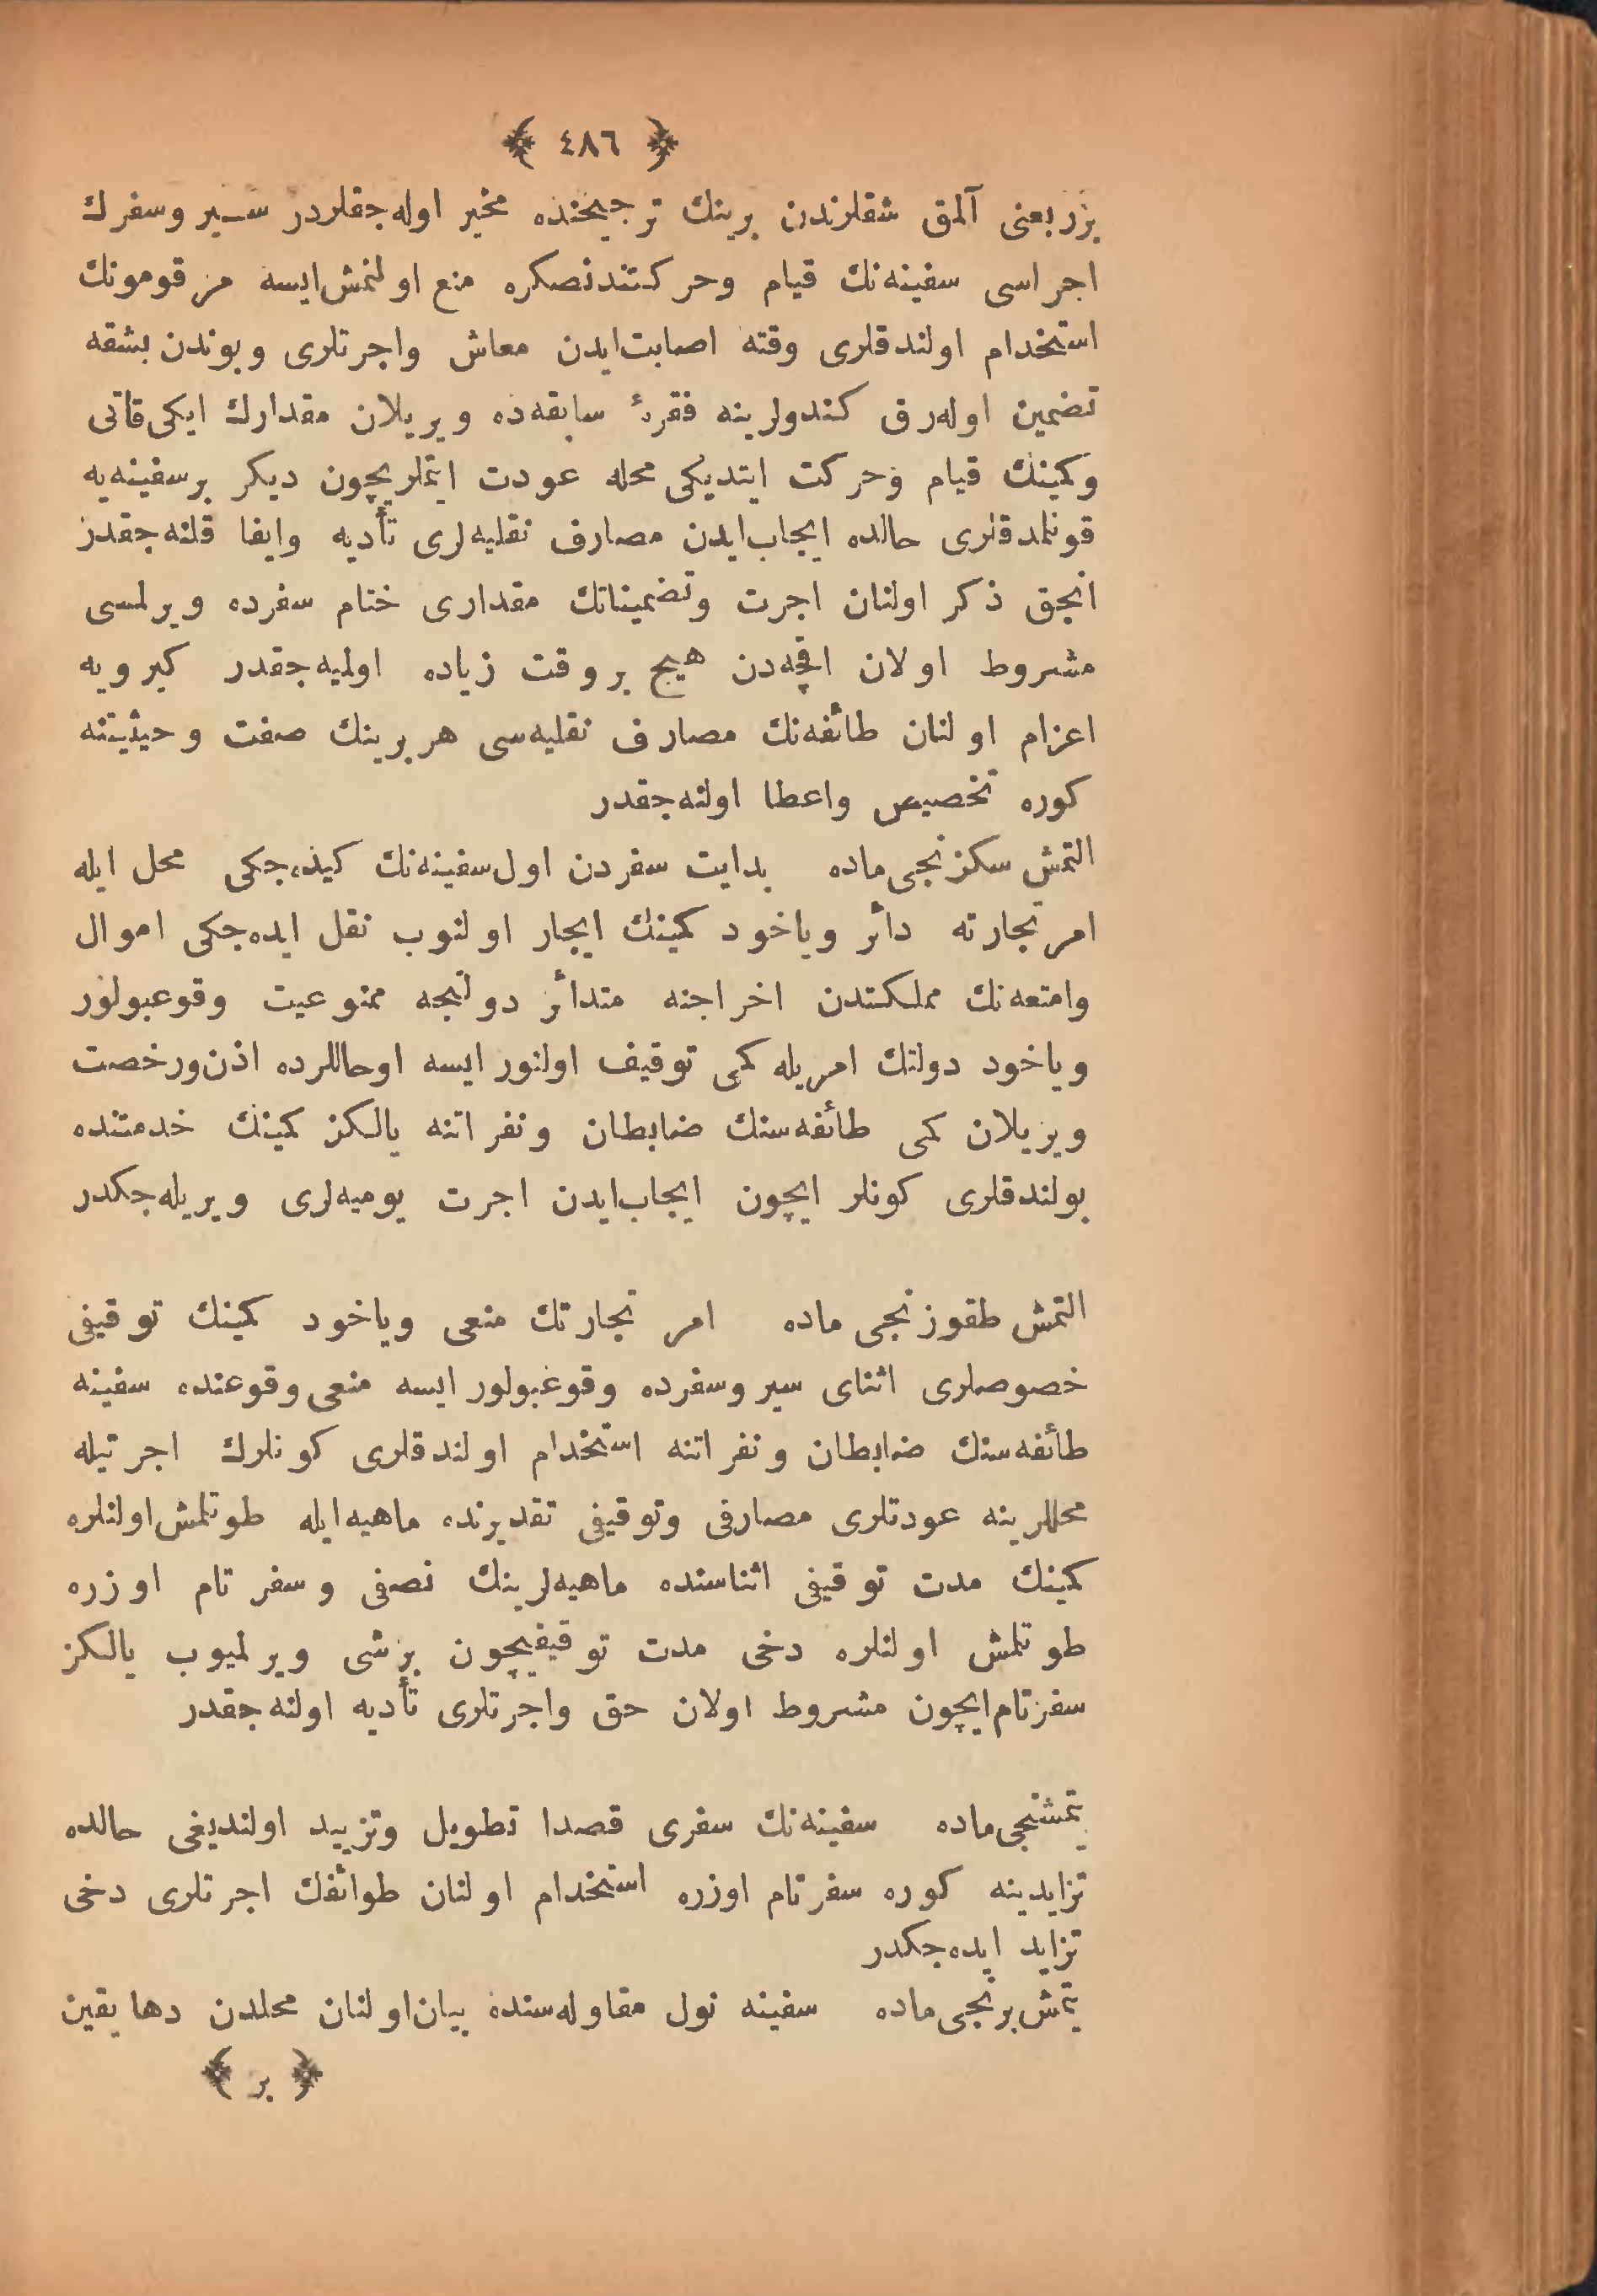 ﴿ ٤٨٦ ﴾
بزر بعنى آلمق شقلرندن برينك ترجيحنده مخير اوله‌جقلردر سير وسفرك
اجراسى سفينه‌نك قيام وحركتندنصكره منع اولنمش‌ايسه مرقومونك
استخدام اولندقلرى وقته اصابت‌ايدن معاش واجرتلرى وبوندن بشقه
تضمين اوله‌رق كندولرينه فقرهٔ سابقه‌ده ويريلان مقدارك ايكى‌قاتى
وكمينك قيام وحركت ايتديكى محله عودت ايتملريچون ديكر برسفينه‌يه
قونلدقلرى حالده ايجاب‌ايدن مصارف نقليه‌لرى تأديه وايفا قلنه‌جقدر
انجق ذكر اولنان اجرت وتضميناتك مقدارى ختام سفرده ويرلمسى
مشروط اولان اقچه‌دن هيچ بر وقت زياده اولميه‌جقدر كيرويه
اعزام اولنان طائفه‌نك مصارف نقليه‌سى هر برينك صفت وحيثيتنه
كوره تخصيص واعطا اولنه‌جقدر
التمش سكزنجى‌ماده بدايت سفردن اول‌سفينه‌نك كيده‌جكى محل ايله
امر تجارته دائر وياخود كمينك ايجار اولنوب نقل ايده‌جكى اموال
وامتعه‌نك مملكتدن اخراجنه متدائر دولتجه ممنوعيت وقوعبولور
وياخود دولتك امريله كمى توقيف اولنور ايسه اوحاللرده اذن‌ورخصت
ويريلان كمى طائفه‌سنك ضابطان ونفراتنه يالكز كمينك خدمتنده
بولندقلرى كونلر ايچون ايجاب‌ايدن اجرت يوميه‌لرى ويريله‌جكدر
التمش طقوزنجى ماده امر تجارتك منعى وياخود كمينك توقيفى
خصوصلرى اثناى سير وسفرده وقوعبولور ايسه منعى وقوعنده سفينه
طائفه‌سنك ضابطان ونفراتنه استخدام اولندقلرى كونلرك اجرتيله
محللرينه عودتلرى مصارفى وتوقيفى تقديرنده ماهيه‌ايله طوتلمش‌اولنلره
كمينك مدت توقيفى اثناسنده ماهيه‌لرينك نصفى وسفر تام اوزره
طوتلمش اولنلره دخى مدت توقيفيچون برشى ويرلميوب يالكز
سفرتام‌ايچون مشروط اولان حق واجرتلرى تأديه اولنه‌جقدر
يتمشنجى‌ماده سفينه‌نك سفرى قصدا تطويل وتزييد اولنديغى حالده
تزايدينه كوره سفرتام اوزره استخدام اولنان طوائفك اجرتلرى دخى
تزايد ايده‌جكدر
يتمش‌برنجى‌ماده سفينه نول مقاوله‌سنده بيان‌اولنان محلدن دها يقين
﴿ بر ﴾